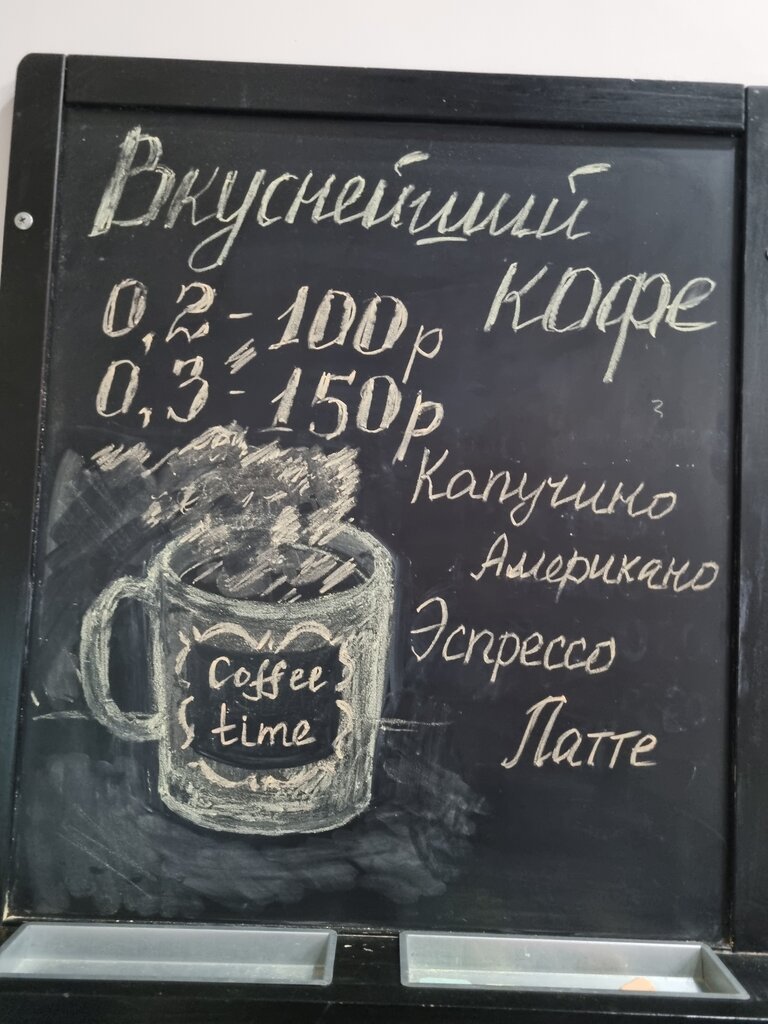 Вкуснейший
кофе
0,2 - 100р
0,3 - 150р
Капучино
Американо
Эспрессо
Латте
Coffee
time